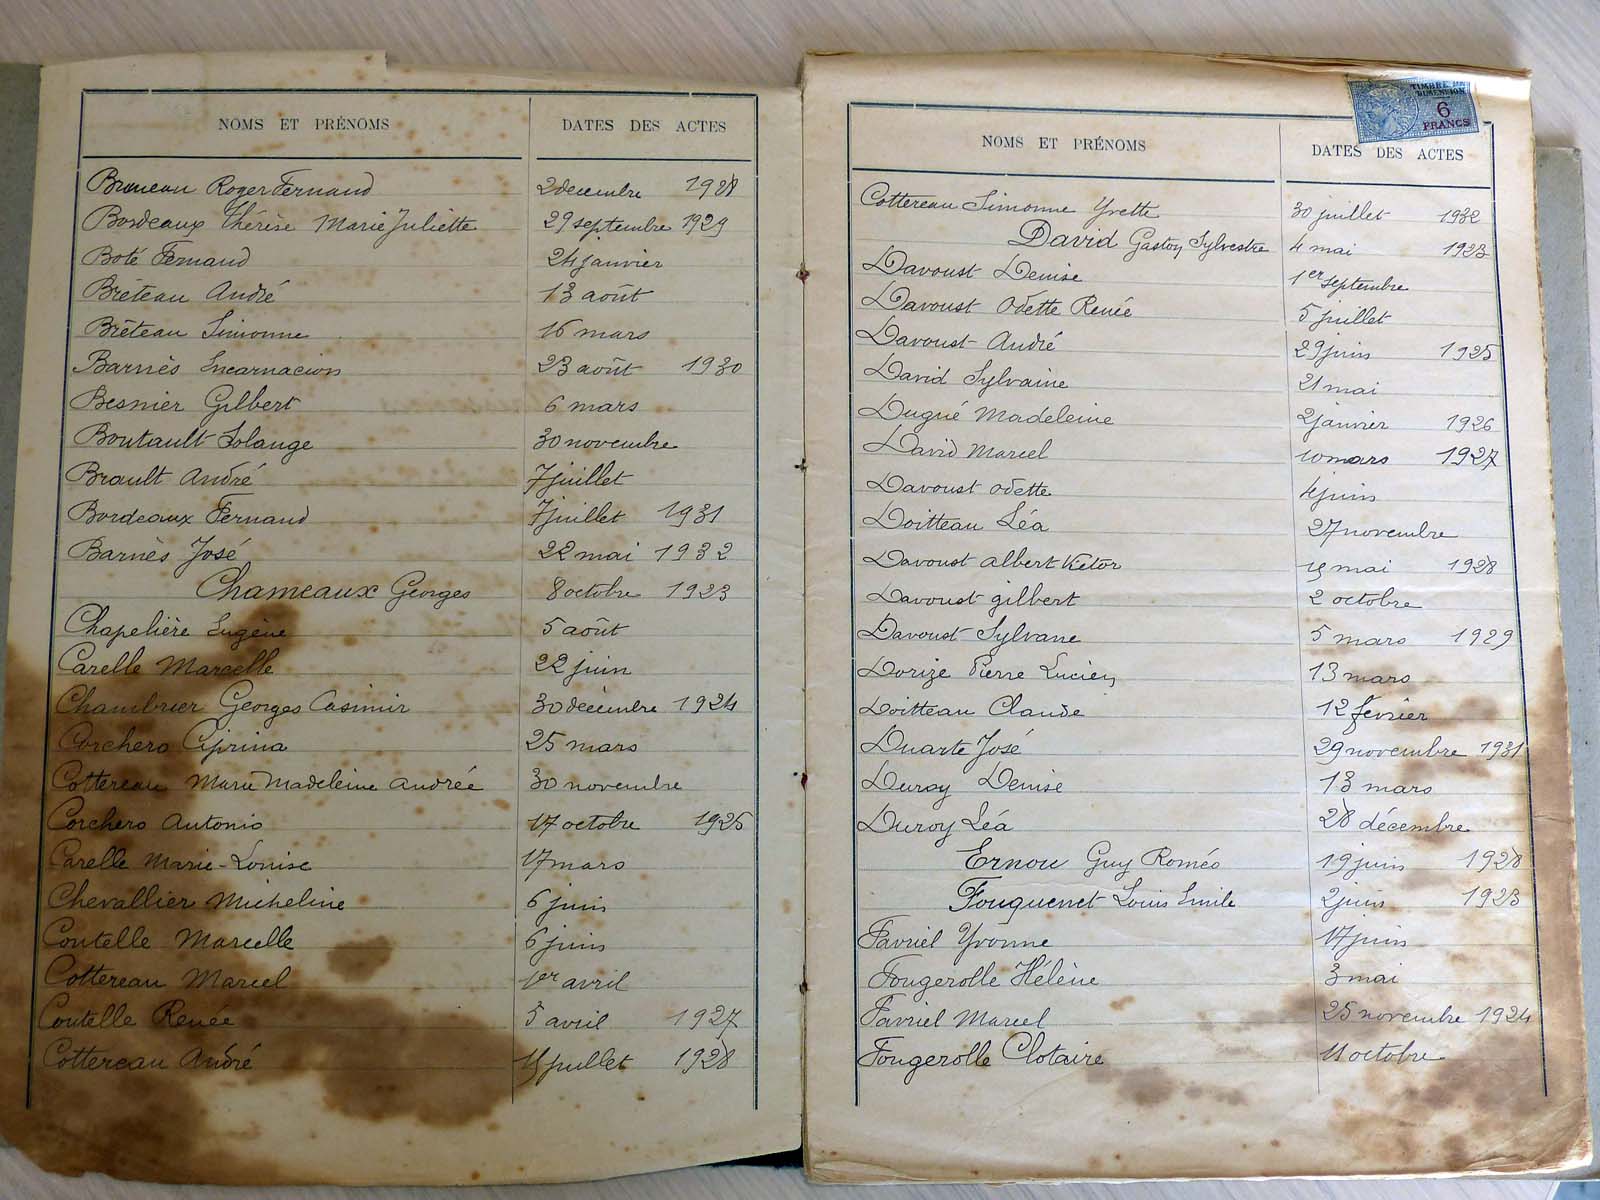 NOMS ET PRÉNOMS DATES DES ACTES
Bruneau Roger Fernand 2 décembre 1928
Bordeaux Thérèse Marie Juliette 29 septembre 1929
Boté Fernand 24 janvier
Breteau André 13 août
Bréteau Simonne 16 mars
Barnès Incarnacion 23 août 1930
Besnier Gilbert 6 mars
Boutault Solange 30 novembre
Brault André 7 juillet
Bordeaux Fernand 7 juillet 1931
Barnès José 22 mai 1932
Chameaux Georges 8 octobre 1923
Chapelière Eugène 5 août
Carelle Marcelle 22 juin
Chambrier Georges Casimir 30 décembre 1924
Corchero Ciprina 25 mars
Cottereau Marie Madeleine Andrée 30 novembre
Corchero Antonio 17 octobre 1925
Carelle Marie-Louise 17 mars
Chevallier Micheline 6 juin
Coutelle Marcelle 6 juin
Cottereau Marcel 1er avril
Coutelle Renée 5 avril 1927
Cottereau André 15 juillet 1928
TIMBRE DE
DIMENSION
6
FRANCS
NOMS ET PRÉNOMS DATES DES ACTES
Cottereau Simonne Yvette 30 juillet 1932
David Gaston Sylvestre 4 mai 1923
Davoust Denise 1er septembre
Davoust Odette Renée 5 juillet
Davoust André 29 juin 1925
David Sylvaine 21 mai
Dugué Madeleine 2 janvier 1926
David Marcel 10 mars 1927
Davoust Odette 4 juin
Doitteau Léa 27 novembre
Davoust Albert Victor 15 mai 1928
Davoust gilbert 2 octobre
Davoust Sylvane 5 mars 1929
Dorizé Pierre Lucien 13 mars
Doitteau Claude 12 février
Duarte José 29 novembre 1931
Duroy Denise 13 mars
Duroy Léa 28 décembre
Ernou Guy Roméo 19 juin 1928
Fouquenet Louis Emile 2 juin 1923
Favriel Yvonne 17 juin
Fougerolle Hélène 3 mai
Favriel Marcel 25 novembre 1924
Fougerolle Clotaire 11 octobre